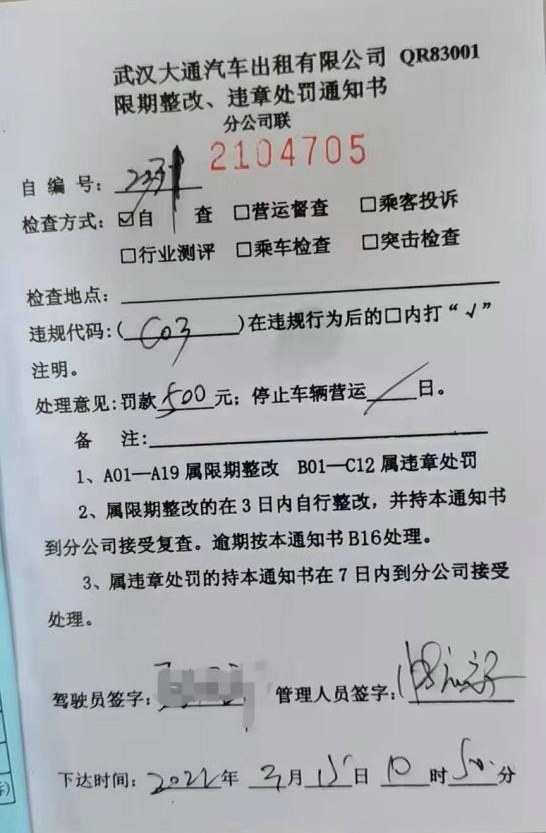 武汉大通汽车出租有限公司 QR83001
限期整改、违章处罚通知书
分公司联
2104705
自编号:
检查方式: ☑自 查 □营运督查 □乘客投诉
□行业测评 □乘车检查 □突击检查
检查地点:
违规代码:( C03 )在违规行为后的□内打“√”
注明。
处理意见:罚款 500 元; 停止车辆营运 / 日。
备 注:
1、A01—A19属限期整改 B01—C12属违章处罚
2、属限期整改的在3日内自行整改,并持本通知书
到分公司接受复查。逾期按本通知书B16处理。
3、属违章处罚的持本通知书在7日内到分公司接受
处理。
驾驶员签字: 管理人员签字:
下达时间: 2022年 3月 15日 10时 50分